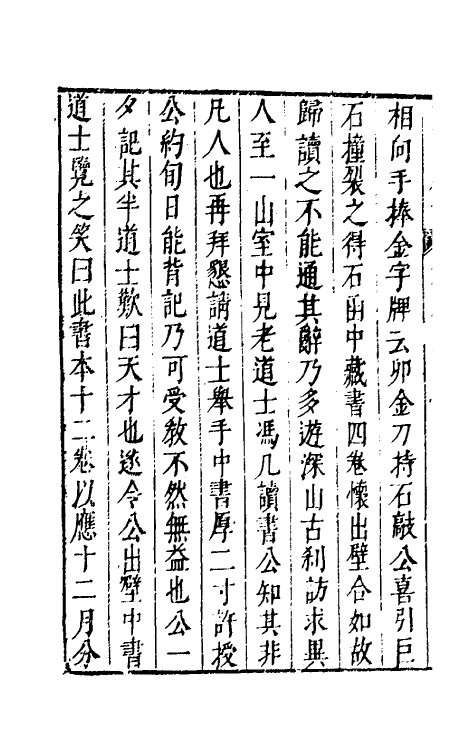 相向手捧金字牌云卯金刀持石敲公喜引巨
石撞裂之得石函中藏書四卷懷出壁合如故
歸讀之不能通其辭乃多遊深山古剎訪求異
人至一山室中見老道士馮几讀書公知其非
凡人也再拜懇請道士舉手中書厚二寸許授
公約旬日能背記乃可受教不然無益也公一
夕記其半道士歎曰天才也遂令公出壁中書
道士覽之笑曰此書本十二卷以應十二月分